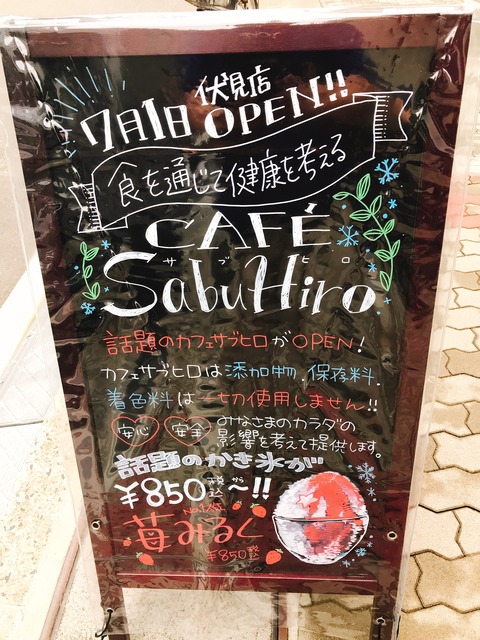 伏見店
7月1日 OPEN!!
食を通じて健康を考える
CAFÉ
サブヒロ
SabuHiro
話題のカフェサブヒロがOPEN!
カフェサブヒロは添加物.保存料.
着色料は一切使用しません!!
安心 安全 みなさまのカラダの
影響を考えて提供します。
話題のかき氷が
¥850税込から〜!!
No.1人気
苺みるく
¥850税込